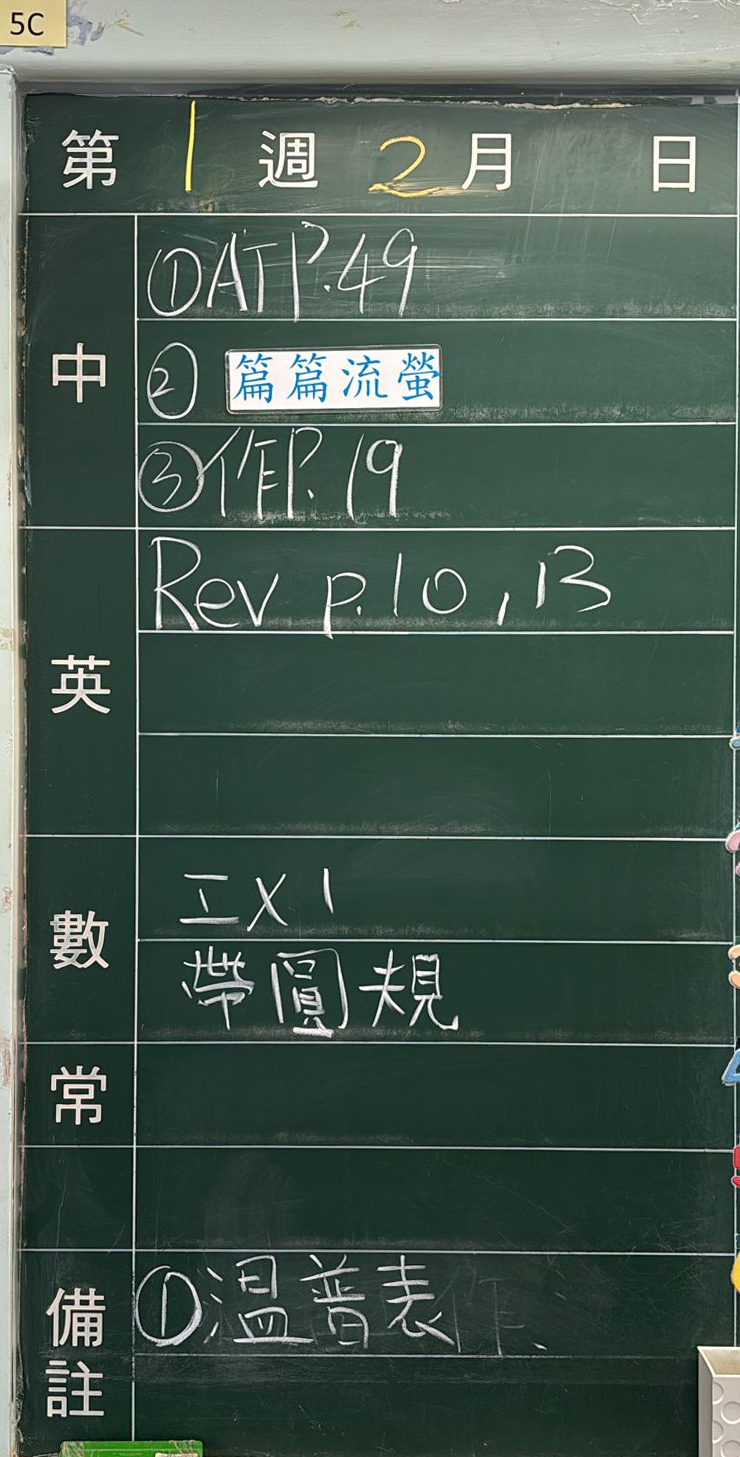 5C
第 1 週 2 月 日
中
①AT P.49
② 篇篇流螢
③作P.19
英
Rev p.10 , 13
數
工 X 1
帶圓規
常
備註
①溫普表